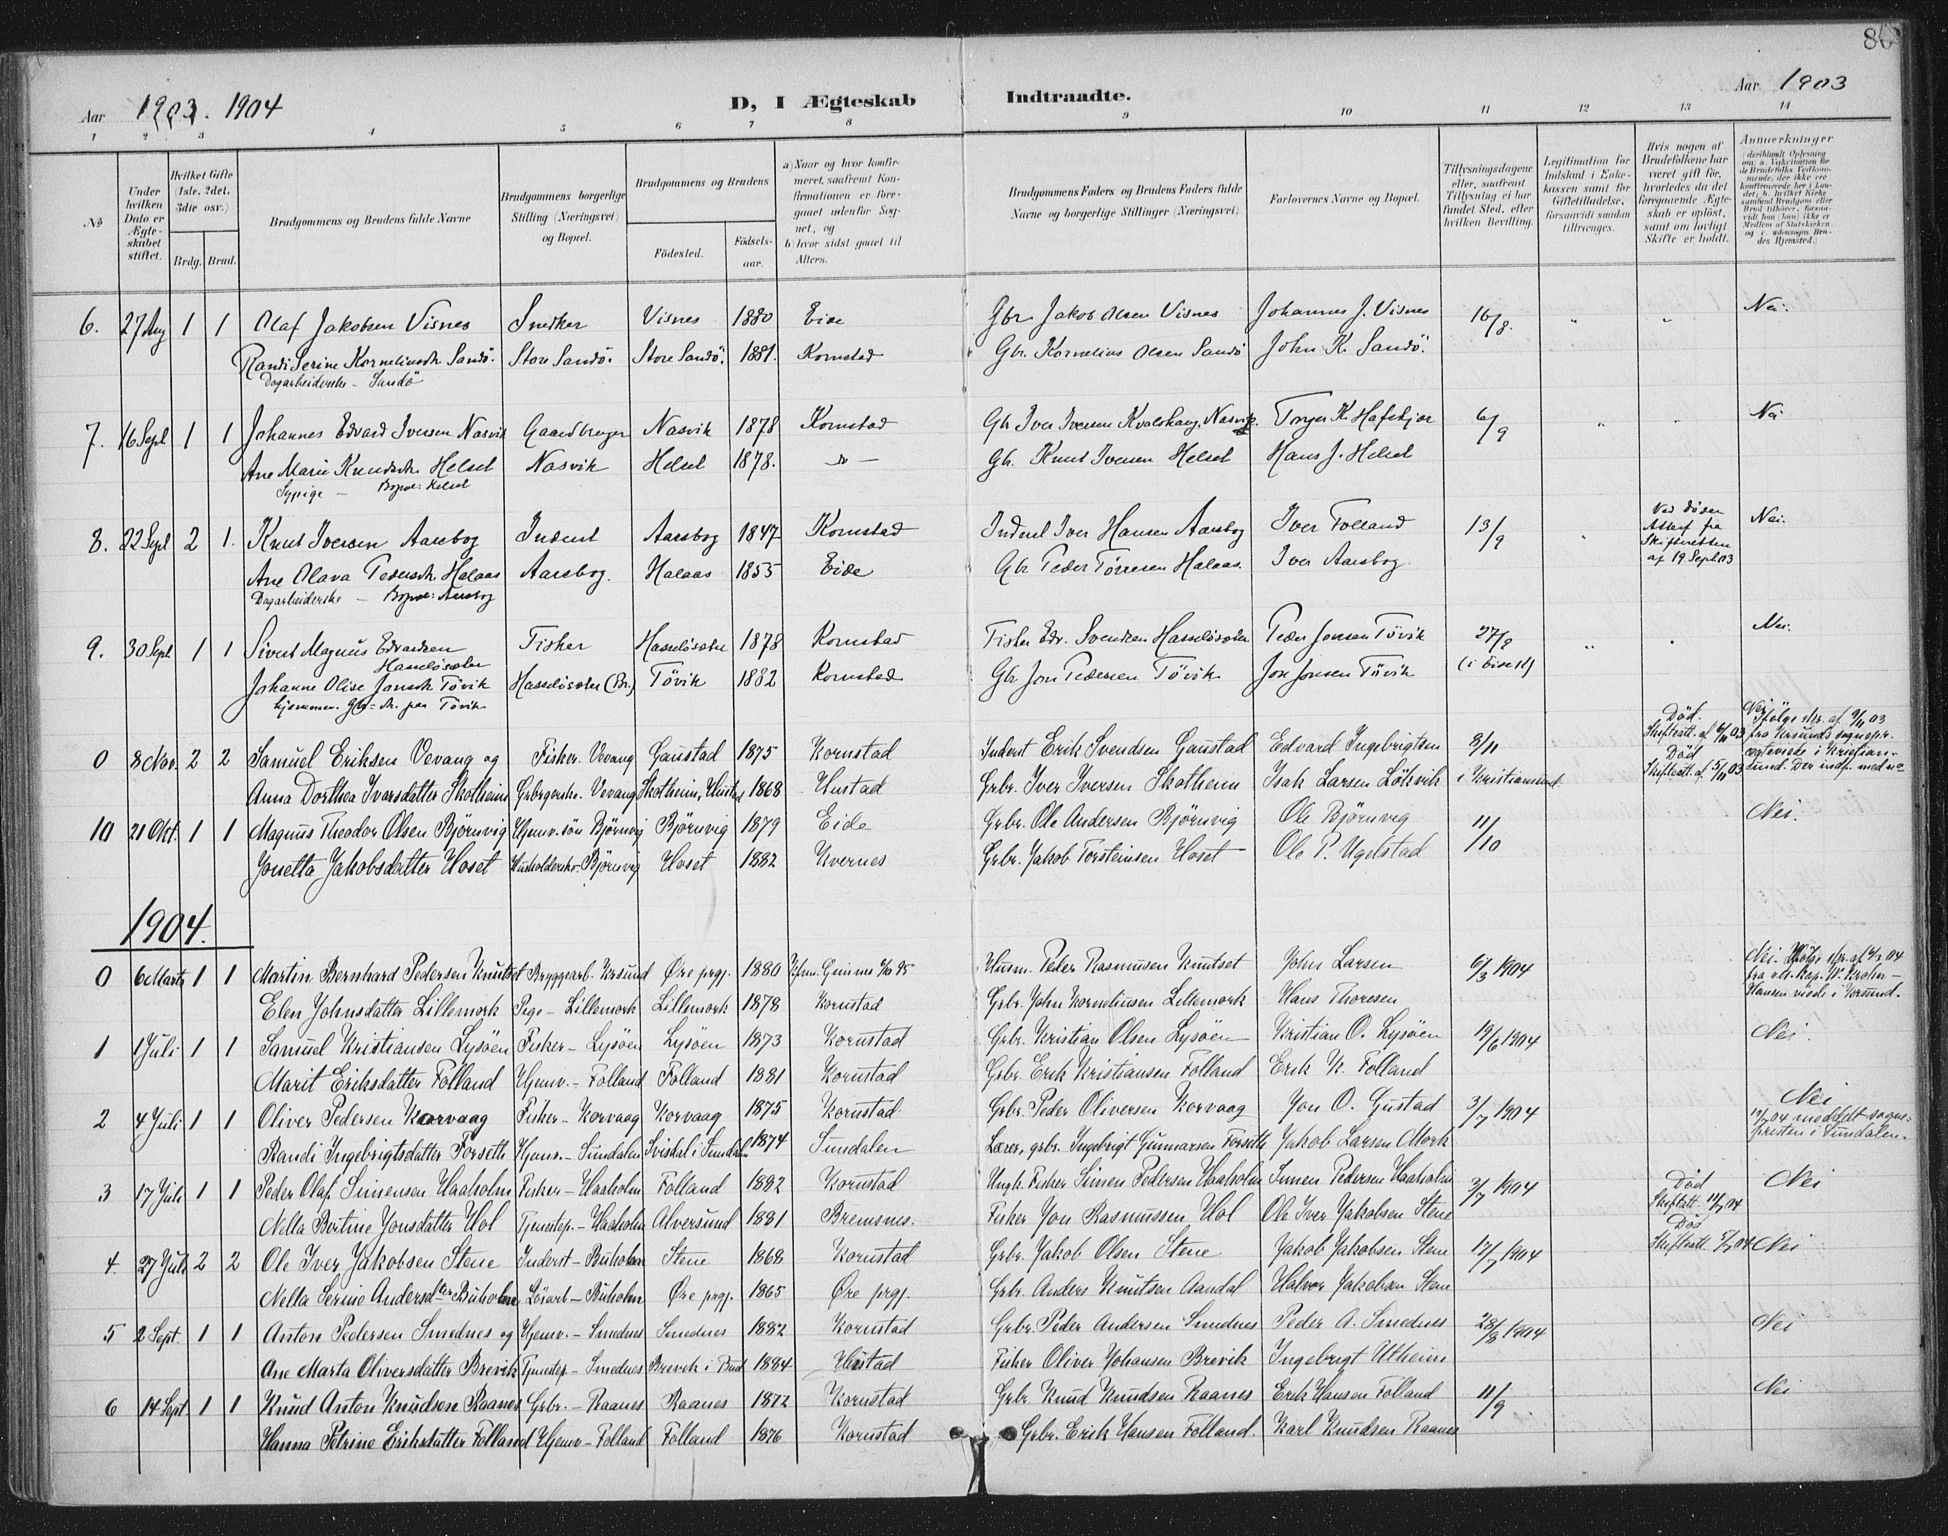 86
Aar 1903. 1904 D, I Ægteskab Indtraadte. Aar 1903
1 2 3 4 5 6 7 8 9 10 11 12 13 14
№
Under hvilken Dato er Ægteskabet stiftet.
Hvilket Gifte (1ste, 2det, 3die osv.)
Brdg. Brud.
Brudgommens og Brudens fulde Navne
Brudgommens borgerlige Stilling (Næringsvei) og Bopæl.
Brudgommens og Brudens
Fødested. Fødselsaar.
a) Naar og hvor konfirmeret, saafremt Konfirmationen er foregaaet udenfor Sognet, og
b) hvor sidst gaaet til Alters.
Brudgommens Faders og Brudens Faders fulde Navne og borgerlige Stillinger (Næringsvei)
Forlovernes Navne og Bopæl.
Tillysningsdagene eller, saafremt Tillysning ei har fundet Sted, efter hvilken Bevilling.
Legitimation for Indskud i Enkekassen samt for Giftetilladelse, forsaavidt saadan tiltrænges.
Hvis nogen af Brudefolkene har været gift før, hvorledes da det foregaaende Ægteskab er opløst, samt om lovligt Skifte er holdt.
Anmerkninger
6. 27 Aug 1 1 Olaf Jakobsen Visnes Snedker Visnes 1880 Eide Gbr Jakob Olsen Visnes Johannes J. Visnes 16/8. Nei.
Randi Serine Kornelinsdt Sandö. Store Sandö. Store Sandö. 1881. Kornstad Gbr. Kornelius Olsen Sandö John K. Sandö.
Dagarbeiderske - Sandö
7. 16 Sept 1 1 Johannes Edvard Iversen Nasvik Gaardbruger Nasvik 1878 Kornstad Gbr Iver Iversen Kvalshaug, Nasvik Torger K. Hafskjær 6/9 Nei
Ane Marie Knudsdt Helset Nasvik Helset 1878. do — Gbr. Knut Iversen Helset Hans J. Helset
Sypige — Bopæl: Helset
8. 22 Sept 2 1. Knut Iversen Aarsbog Inderst Aarsbog 1847 Kornstad Inderst Iver Hansen Aarsbog Iver Folland 13/9 Ved Døden Attest fra Skifteretten af 19 Sept. 03 Nei.
Ane Olava Pedersdt Halaas Aarsbog. Halaas 1855 Eide Gbr Peder Törresen Halaas. Iver Aarsbog.
Dagarbeiderske — Bopæl: Aarsbog
9. 30 Sept 1 1 Sivert Magnus Edvardsen Fisker Hasselösæter 1878 Kornstad Fisker Edv. Svendsen Hasselösæter Peder Jonsen Tövik 27/9 Nei.
Hasselösæter
Johanne Olise Jonsdt Tövik Hasselösæter (Br.) Tövik 1882 Kornstad Gbr Jon Pedersen Tövik Jon Jonsen Tövik
hjemmev. Gbr=dt. paa Tövik
0 8 Nov. 2 2 Samuel Eriksen Vevang og Fisker. Vevang Gaustad 1875 Kornstad Inderst Erik Svendsen Gaustad Edvard Ingebrigtsen 8/11 Død. Skifteatt. af
Anna Dorthea Ivarsdatter Skotheim Grbrgerske. Vevang Skotheim, Hustad 1868 Hustad Grbr. Iver Iversen Skotheim Isak Larsen Lökvik i Kristiansund Død Skifteatt. af
10 21 Okt. 1 1 Magnus Theodor Olsen Björnvig Hjemv. sön Björnvig Björnvig 1879 Eide Grbr. Ole Andersen Björnvig Ole Björnvig 11/10 Nei.
Josetta Jakobsdatter Hoset Husholderske. Björnvig Hoset 1882 Kvernes Grbr. Jakob Torsteinsen Hoset Ole P. Ugelstad
1904.
0 6 Marts 1 1 Martin Bernhard Pedersen Knutset Bryggearb. Krsund Øre prgj. 1880 Husm. Peder Rasmusen Knutset John Larsen 6/3 1904
Elen Johnsdatter Lillemork Pige - Lillemork Lillemork 1878 Kornstad Grbr. John Korneliusen Lillemork Hans Thoresen
1 1 Juli 1 1 Samuel Kristiansen Lysöen Fisker - Lysöen Lysöen 1873 Kornstad Grbr. Kristian Olsen Lysöen Kristian O. Lysöen 19/6 1904 Nei.
Marit Eriksdatter Folland Hjemv. - Folland Folland 1881 Kornstad Grbr. Erik Kristiansen Folland Erik K. Folland
2 4 Juli 1 1 Oliver Pedersen Korvaag Fisker - Korvaag Korvaag 1875 Kornstad Grbr. Peder Oliversen Korvaag Jon O. Gustad 3/7 1904 Nei
Randi Ingebrigtsdatter Forseth Hjemv. - Sundalen Svisdal i Sundalen 1874 Sundalen Lærer, grbr. Ingebrigt Gunnarsen Forseth Jakob Larsen Mork 19/7 04 meddelt sognepresten i Sundalen.
3 17 Juli 1 1 Peder Olaf Simensen Haaholm Fisker - Haaholm Folland 1882 Kornstad Ungk. Fisker Simen Pedersen Haaholm Simen Pedersen Haaholm 3/7 1904 Nei
Nella Bertine Jonsdatter Hol Tjenstep. - Haaholm Alversund 1881 Bremsnes. Fisker Jon Rasmussen Hol Ole Iver Jakobsen Stene
4. 27 Juli 2 2 Ole Iver Jakobsen Stene Inderst - Buholm Stene 1868 Kornstad Grbr. Jakob Olsen Stene Jakob Jakobsen Stene 17/7 1904 Død Skifteatt. Død Skifteatt. Nei
Nella Serine Andersdtter Buholm Lösarb - Buholm Øre prgj. 1865 Øre prgj. Grbr. Anders Knutsen Aandal Halvor Jakobsen Stene
5 2 Sept. 1 1 Anton Pedersen Smednes og Hjemv. - Smednes Smednes 1882 Kornstad Grbr. Peder Andersen Smednes Peder A. Smednes 28/8 1904 Nei
Ane Marta Oliversdatter Brevik Tjenestep. - Smednes Brevik i Bud 1884 Hustad Fisker Oliver Johansen Brevik Ingebrigt Utheim
6 14 Sept. 1 1 Knud Anton Knudsen Raanes Grbr. - Raanes Raanes 1872 Kornstad Grbr Knud Knudsen Raanes Erik Hansen Folland 11/9 Nei
Hanna Petrine Eriksdatter Folland Hjemv - Folland Folland 1876 Kornstad Grbr. Erik Hansen Folland. Karl Knudsen Raanes